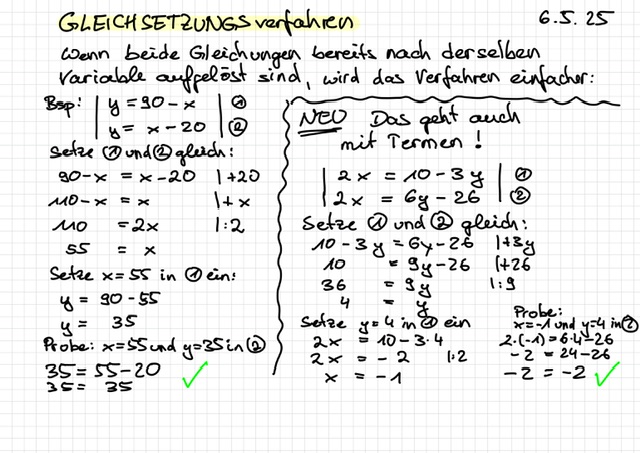 GLEICHSETZUNGSverfahren 6.5.25
Wenn beide Gleichungen bereits nach derselben
Variable aufgelöst sind, wird das Verfahren einfacher:
Bsp: | y = 90 - x | ①
| y = x - 20 | ②
Setze ① und ② gleich:
90 - x = x - 20 | +20
110 - x = x | + x
110 = 2x | :2
55 = x
Setze x = 55 in ① ein:
y = 90 - 55
y = 35
Probe: x=55 und y=35 in ②
35 = 55 - 20
35 = 35 ✓
NEU Das geht auch
mit Termen!
| 2x = 10 - 3y | ①
| 2x = 6y - 26 | ②
Setze ① und ② gleich:
10 - 3y = 6y - 26 | +3y
10 = 9y - 26 | +26
36 = 9y | :9
4 = y
Setze y = 4 in ① ein
2x = 10 - 3·4
2x = -2 | :2
x = -1
Probe:
x=-1 und y=4 in ②
2·(-1) = 6·4 - 26
-2 = 24 - 26
-2 = -2 ✓